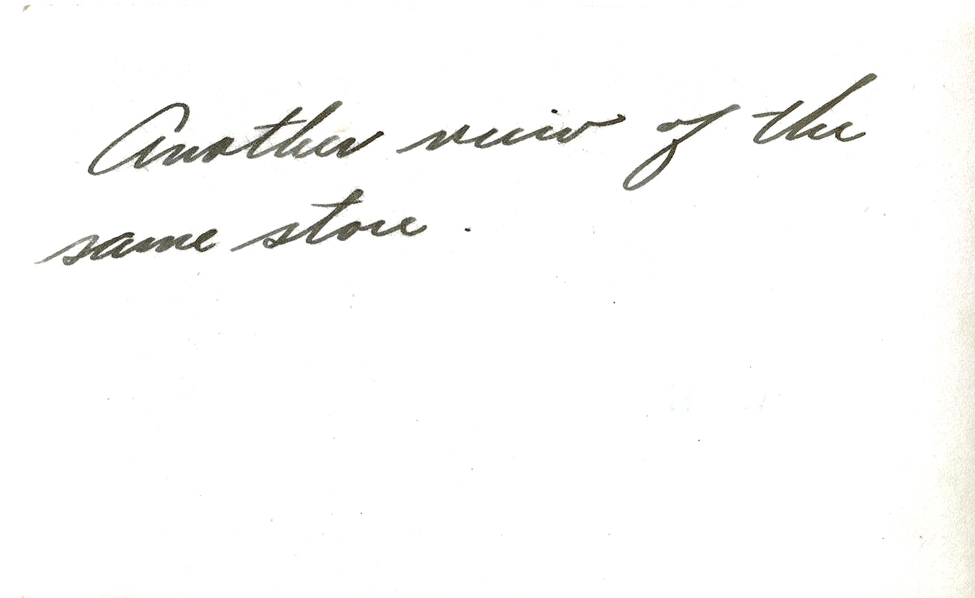 Another view of the
same store.